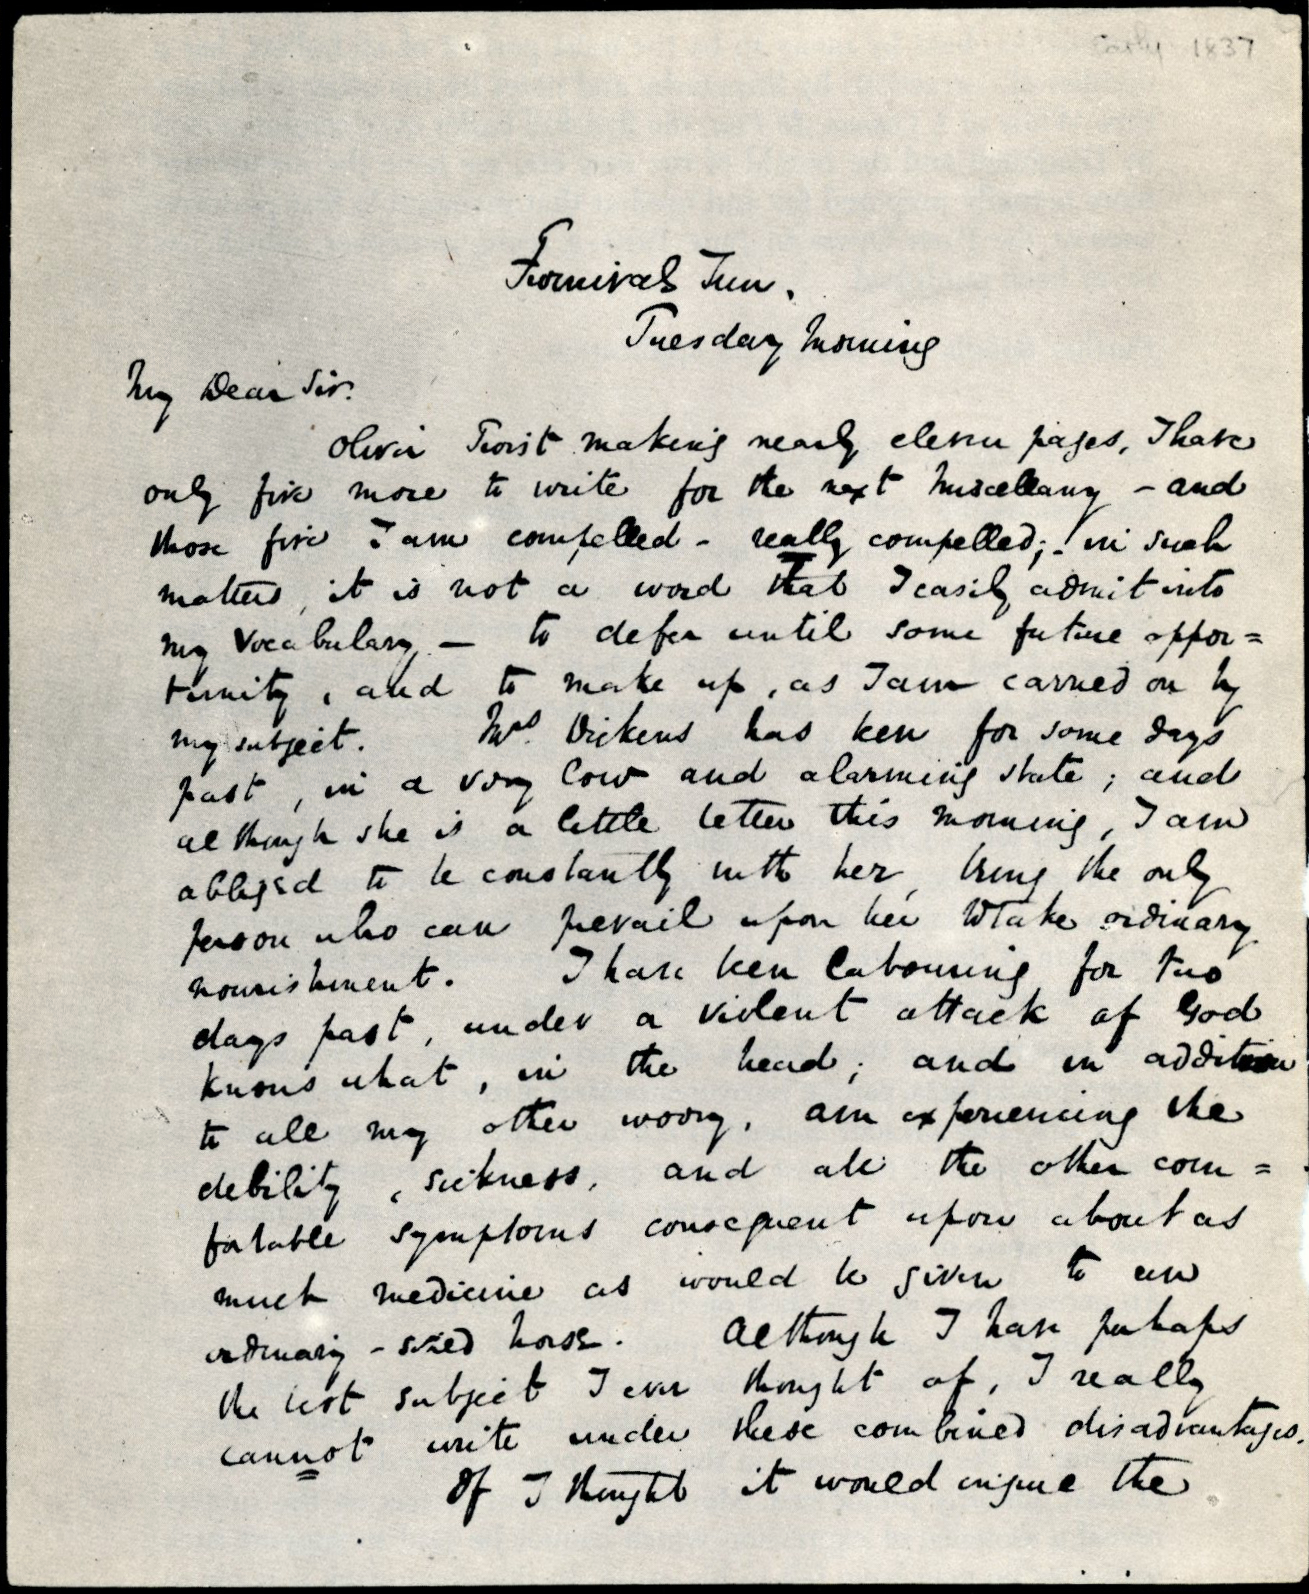 Early 1837
Furnivals Inn.
Tuesday Morning
My Dear Sir.
Oliver Twist making nearly eleven pages, I have
only five more to write for the next Miscellany - and
those five I am compelled - really compelled; in such
matters, it is not a word that I easily admit into
my vocabulary, - to defer until some future oppor=
tunity, and to make up, as I am carried on by
my subject. Mrs. Dickens has been for some days
past, in a very low and alarming state; and
although she is a little better this morning, I am
obliged to be constantly with her, being the only
person who can prevail upon her to take ordinary
nourishment. I have been labouring for two
days past, under a violent attack of God
knows what, in the head; and in addition
to all my other worry, am experiencing the
debility, sickness, and all the other com=
fortable symptoms consequent upon about as
much medicine as would be given to an
ordinary-sized horse. Although I have perhaps
the best subject I ever thought of, I really
cannot write under these combined disadvantages.
If I thought it would injure the